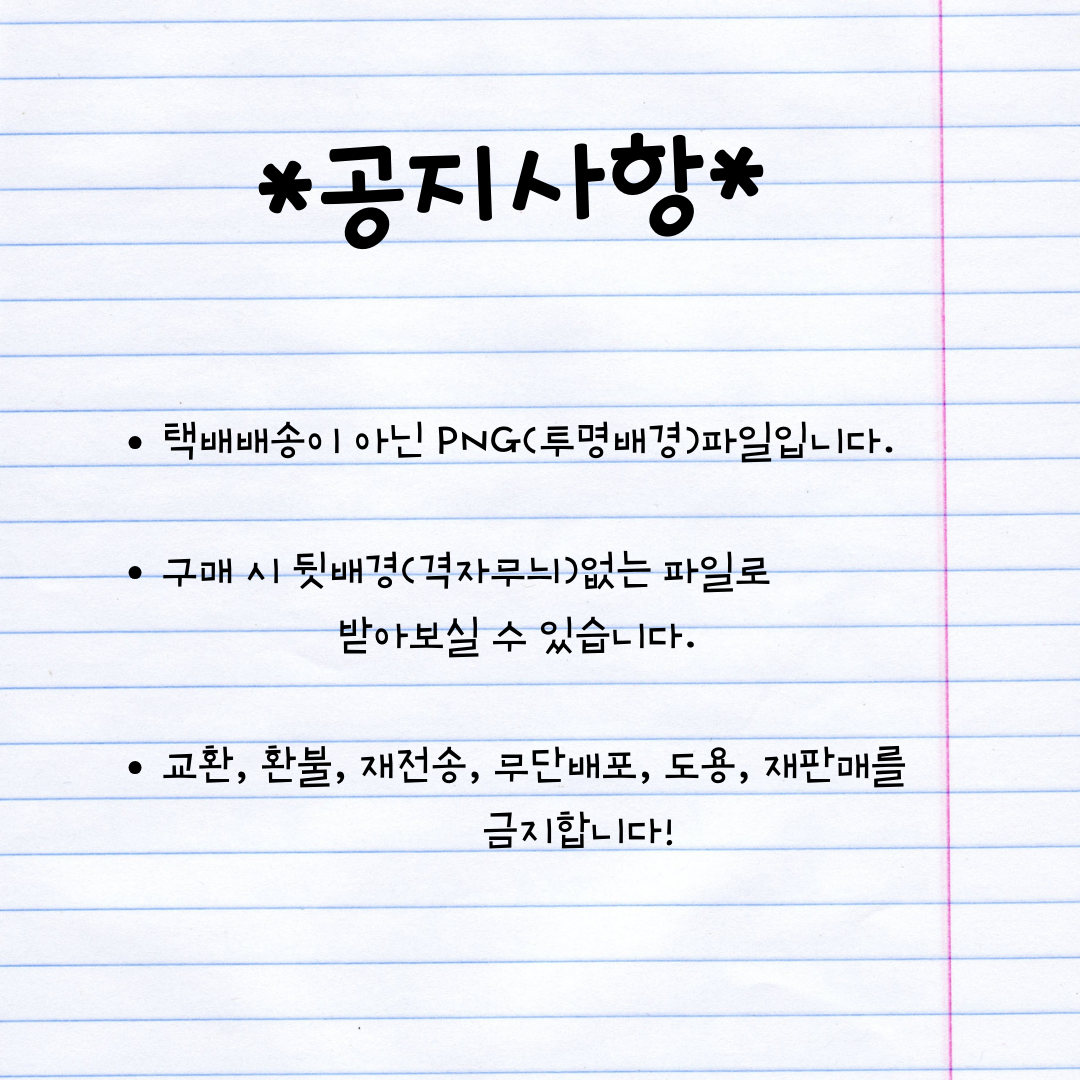 *공지사항*
• 택배배송이 아닌 PNG(투명배경)파일입니다.
• 구매 시 뒷배경(격자무늬)없는 파일로
받아보실 수 있습니다.
• 교환, 환불, 재전송, 무단배포, 도용, 재판매를
금지합니다!